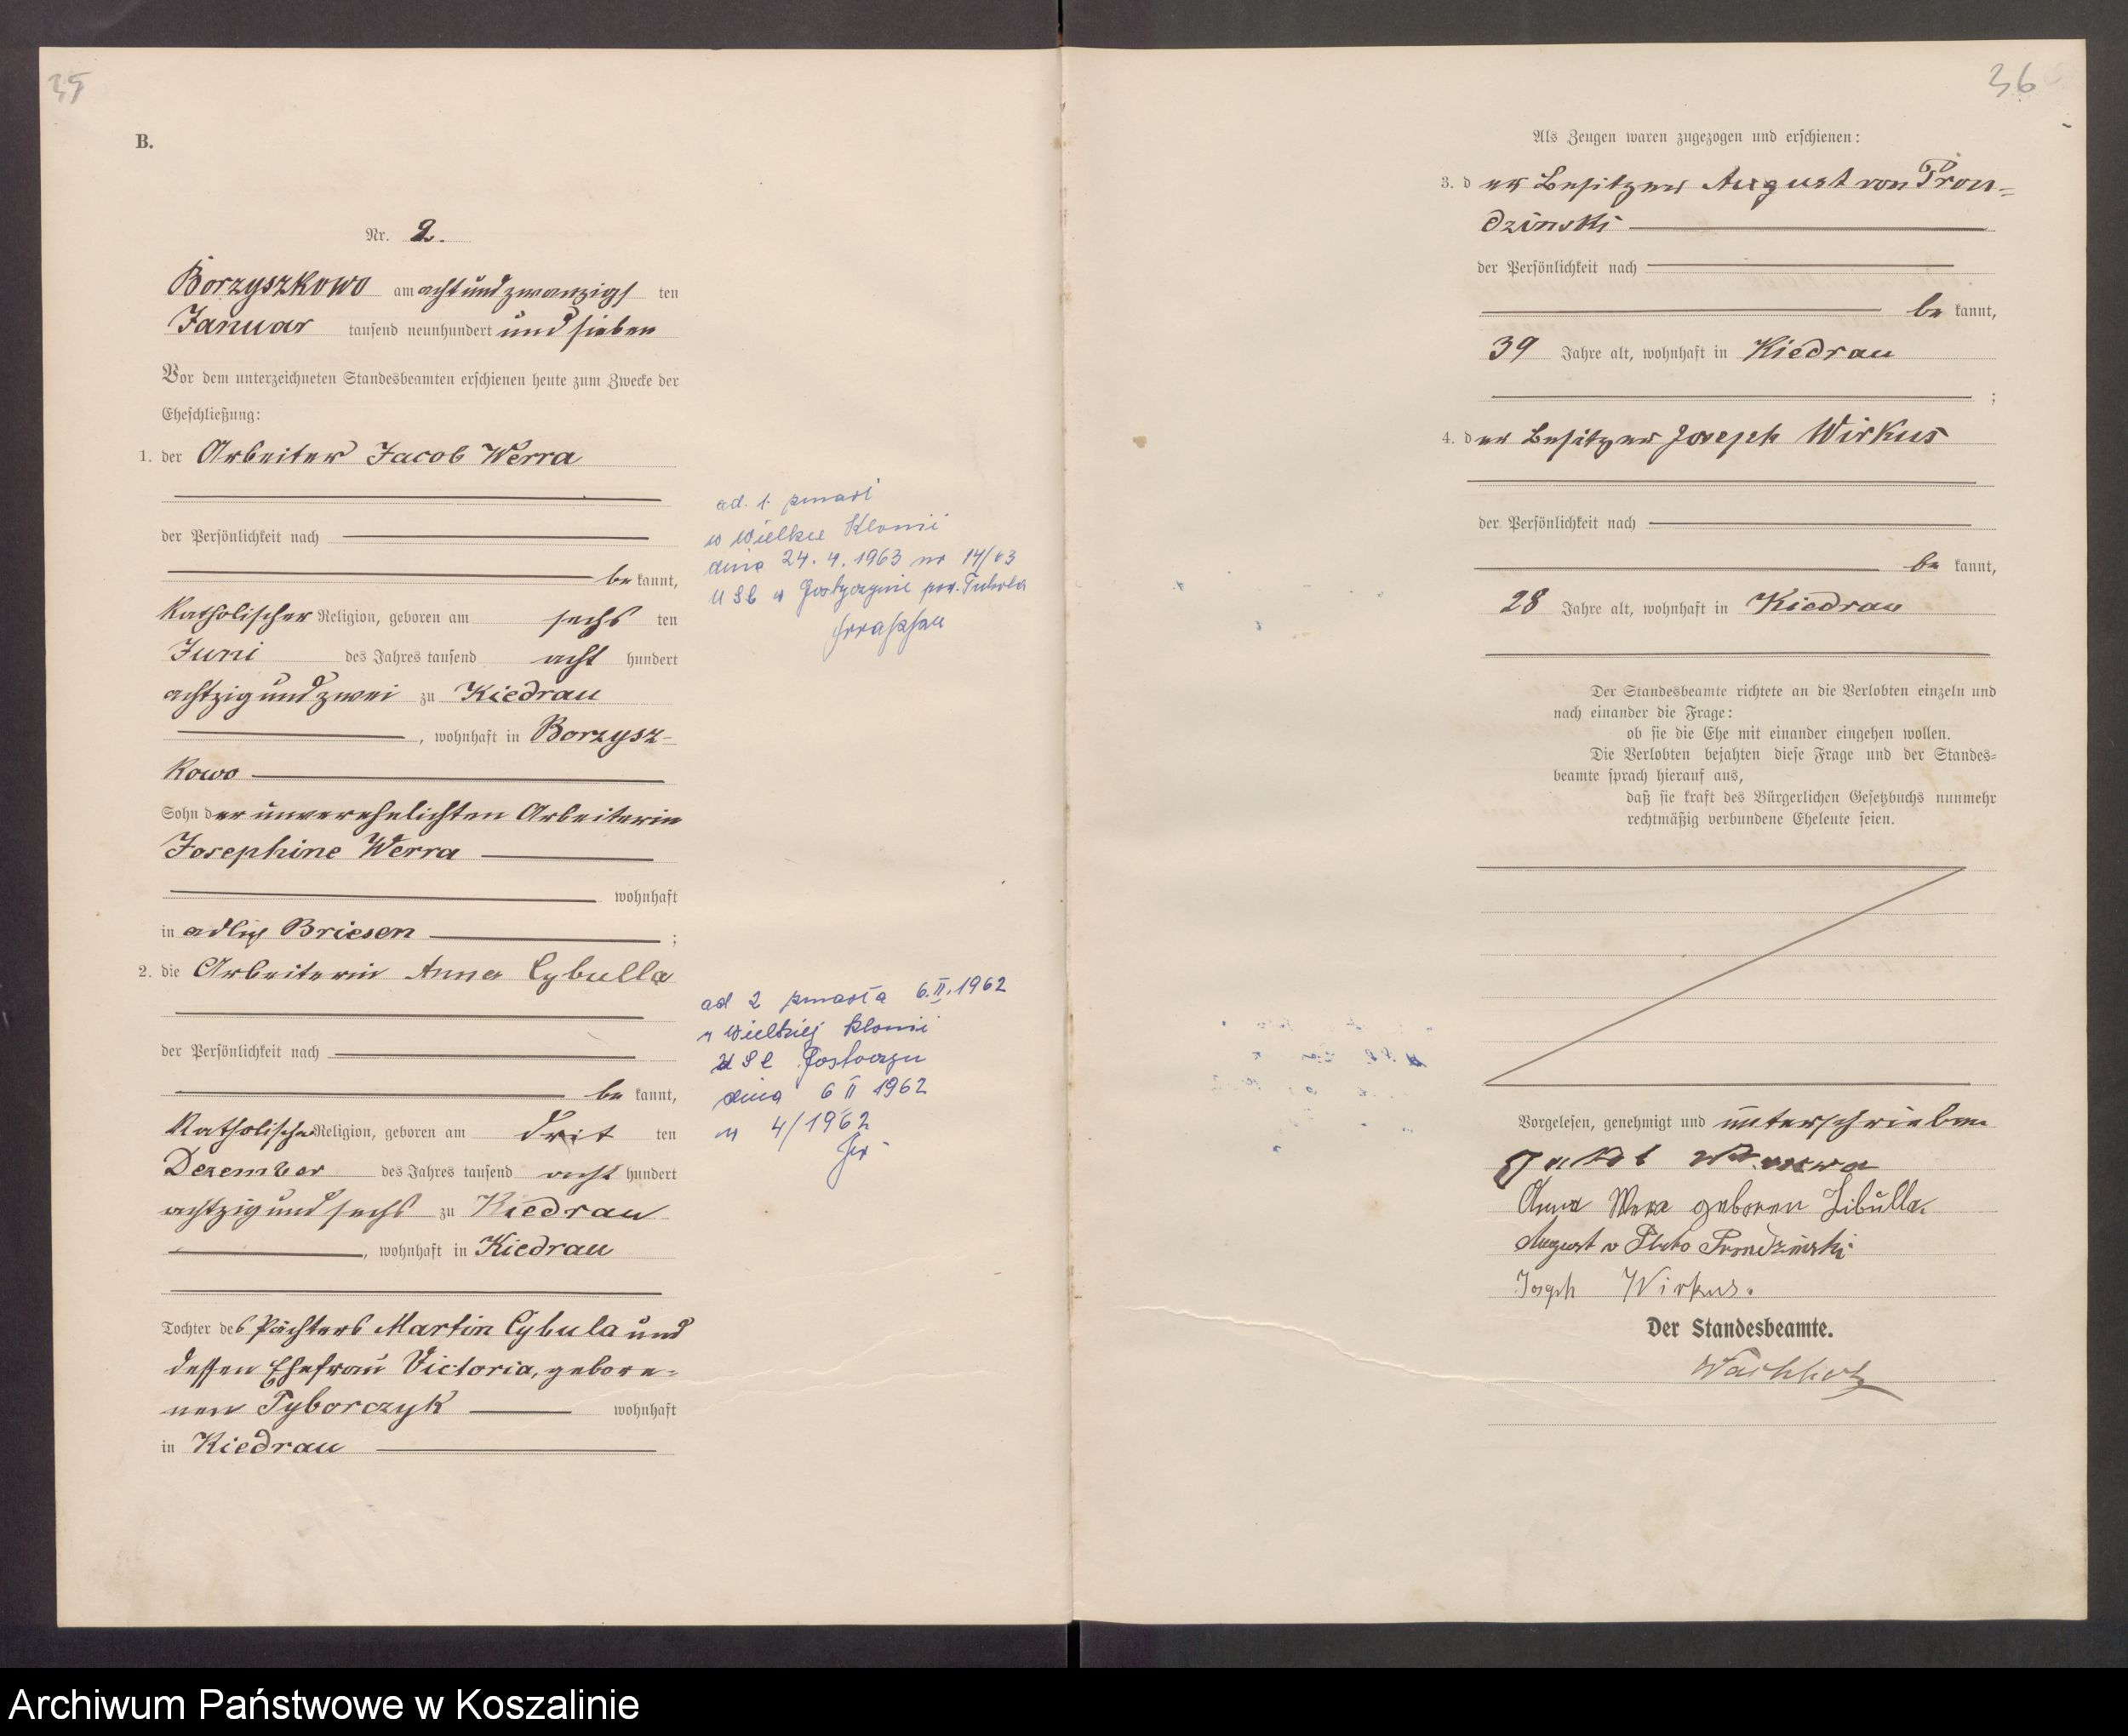 35
B.
Nr. 2.
Borzyszkowo am achtundzwanzigsten
Januar tausend neunhundert und sieben
Vor dem unterzeichneten Standesbeamten erschienen heute zum Zwecke der
Eheschließung:
1. der Arbeiter Jacob Werra
der Persönlichkeit nach
bekannt,
katholischer Religion, geboren am sechsten
Juni des Jahres tausend achthundert
achtzigundzwei zu Kiedrau
, wohnhaft in Borzysz-
kowo
Sohn der unverehelichten Arbeiterin
Josephine Werra
wohnhaft
in adlig Briesen ;
2. die Arbeiterin Anna Cybulla
der Persönlichkeit nach
bekannt,
katholischer Religion, geboren am dritten
Dezember des Jahres tausend achthundert
achtzigundsechs zu Kiedrau
, wohnhaft in Kiedrau
Tochter des Pächters Martin Cybula und
dessen Ehefrau Victoria, gebore-
nen Tyborczyk wohnhaft
in Kiedrau
ad. 1. zmarł
w Wielkiej Klonii
dnia 24. 4. 1963 nr 14/63
USC w Gostycynie pow. Tuchola
ad 2 zmarła 6.II.1962
w Wielkiej Klonii
USC
dnia 6 II 1962
nr 4/1962
36
Als Zeugen waren zugezogen und erschienen:
3. der Besitzer August von Pron-
dzinski
der Persönlichkeit nach
bekannt,
39 Jahre alt, wohnhaft in Kiedrau
;
4. der Besitzer Joseph Wirkus
der Persönlichkeit nach
bekannt,
28 Jahre alt, wohnhaft in Kiedrau
Der Standesbeamte richtete an die Verlobten einzeln und
nach einander die Frage:
ob sie die Ehe mit einander eingehen wollen.
Die Verlobten bejahten diese Frage und der Standes-
beamte sprach hierauf aus,
daß sie kraft des Bürgerlichen Gesetzbuchs nunmehr
rechtmäßig verbundene Eheleute seien.
Vorgelesen, genehmigt und unterschrieben
Anna Wera geboren Zibulla.
August v Prondzinski
Joseph Wirkus.
Der Standesbeamte.
Archiwum Państwowe w Koszalinie